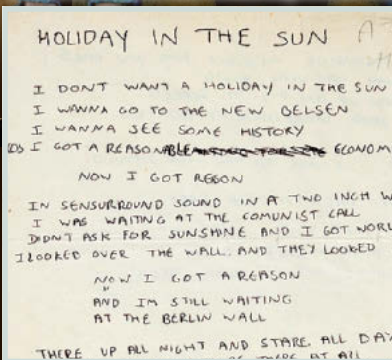 HOLIDAY IN THE SUN
I DONT WANT A HOLIDAY IN THE SUN
I WANNA GO TO THE NEW BELSEN
I WANNA SEE SOME HISTORY
I GOT A REASONABLE ECONOM
NOW I GOT REASON
IN SENSURROUND SOUND IN A TWO INCH W
I WAS WAITING AT THE COMUNIST CALL
DIDNT ASK FOR SUNSHINE AND I GOT WORL
I LOOKED OVER THE WALL. AND THEY LOOKED
NOW I GOT A REASON
AND IM STILL WAITING
AT THE BERLIN WALL
THERE UP ALL NIGHT AND STARE ALL DAY
AT ALL